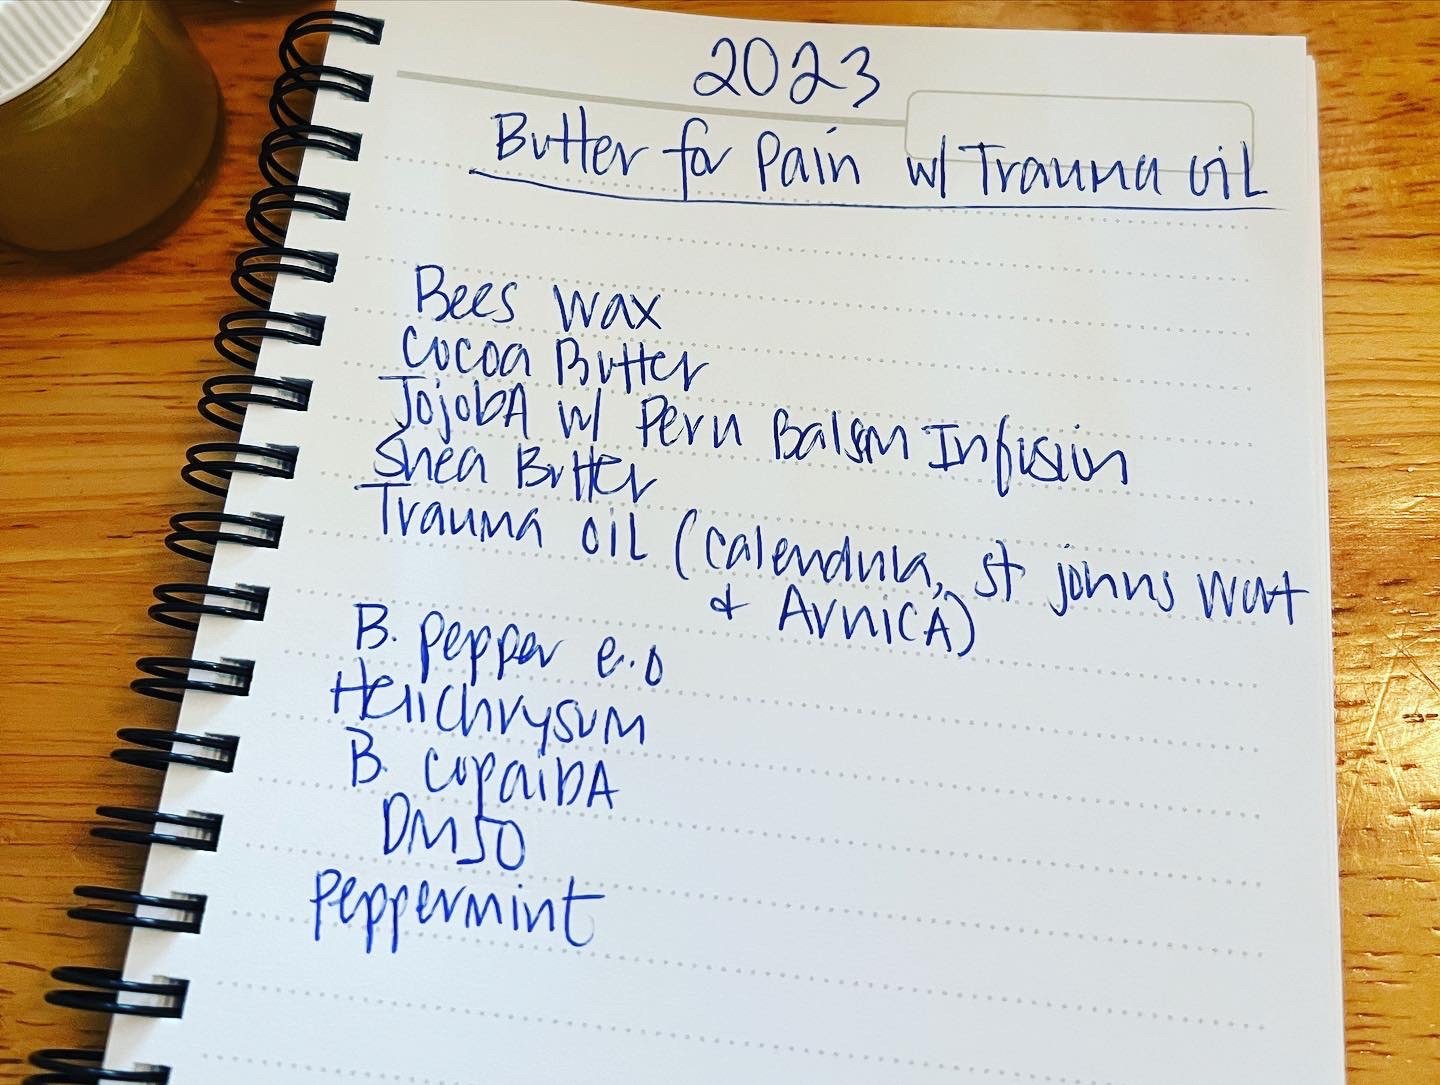 2023
Butter for Pain w/ Trauma oil
Bees wax
Cocoa Butter
JojobA w/ Peru Balsm Infusion
Shea Butter
Trauma oil (calendula, st johns wort
& ArnicA)
B. pepper e.o
Helichrysum
B. copaibA
DMSO
peppermint